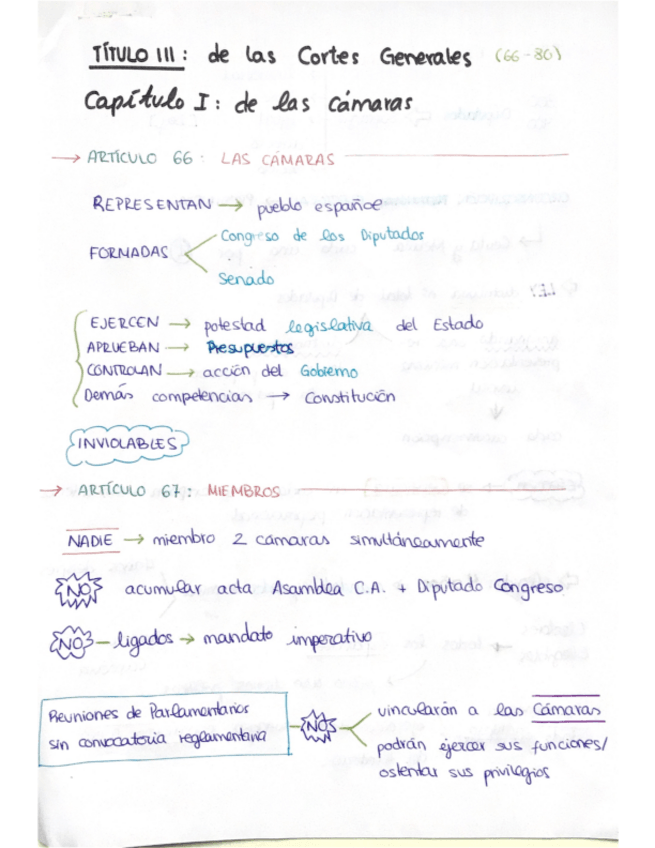 TÍTULO III: de las Cortes Generales (66-80)
Capítulo I: de las cámaras
→ ARTÍCULO 66: LAS CÁMARAS
REPRESENTAN → pueblo español
FORMADAS
Congreso de los Diputados
Senado
EJERCEN → potestad legislativa del Estado
APRUEBAN → Presupuestos
CONTROLAN → acción del Gobierno
Demás competencias → Constitución
INVIOLABLES
→ ARTÍCULO 67: MIEMBROS
NADIE → miembro 2 cámaras simultáneamente
NO acumular acta Asamblea C.A. + Diputado Congreso
NO - ligados → mandato imperativo
Reuniones de Parlamentarios
sin convocatoria reglamentaria
NO
vincularán a las Cámaras
podrán ejercer sus funciones/
ostentar sus privilegios